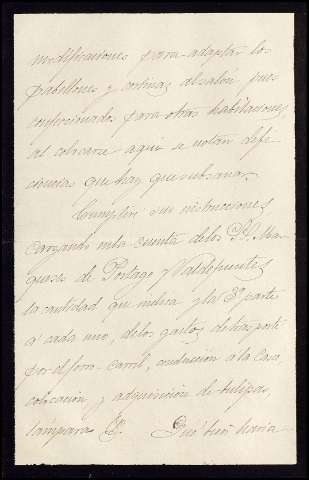 modificaciones para adaptar los
pabellones y cortinas al salon pues
confeccionados para otras habitaciones,
al colocarse aqui se notan defi-
ciencias que hay que subsanar.
Cumplin sus instrucciones
cargando en la cuenta de los Sres. Mar-
queses de Portago y Valdefuentes
la cantidad que indica y la 3ª parte
á cada uno, de los gastos de trasporte
por el ferro-carril, conduccion a la casa,
colocacion y adquisicion de tulipas,
lampara &. Qué bien haria